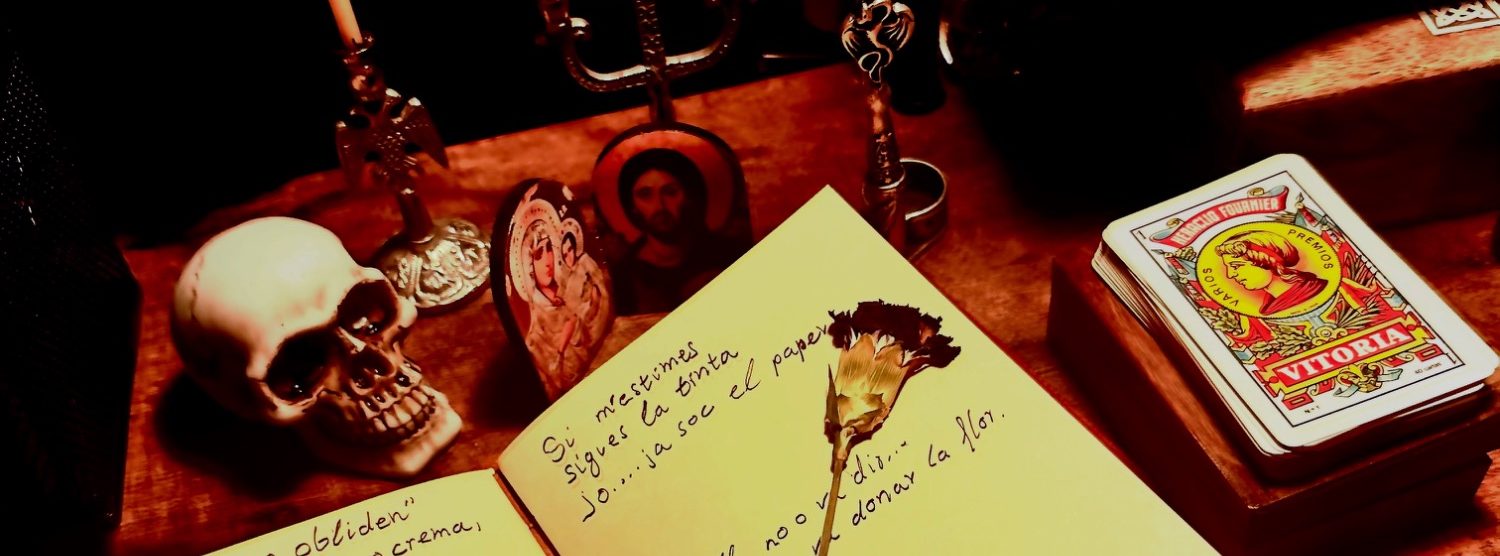 obliden"
crema,
Si m'estimes
sigues la tinta
jo....ja soc el paper
no o
dir..."
donar la flor.
HERACLIO FOURNIER
VARIOS PREMIOS
VITORIA